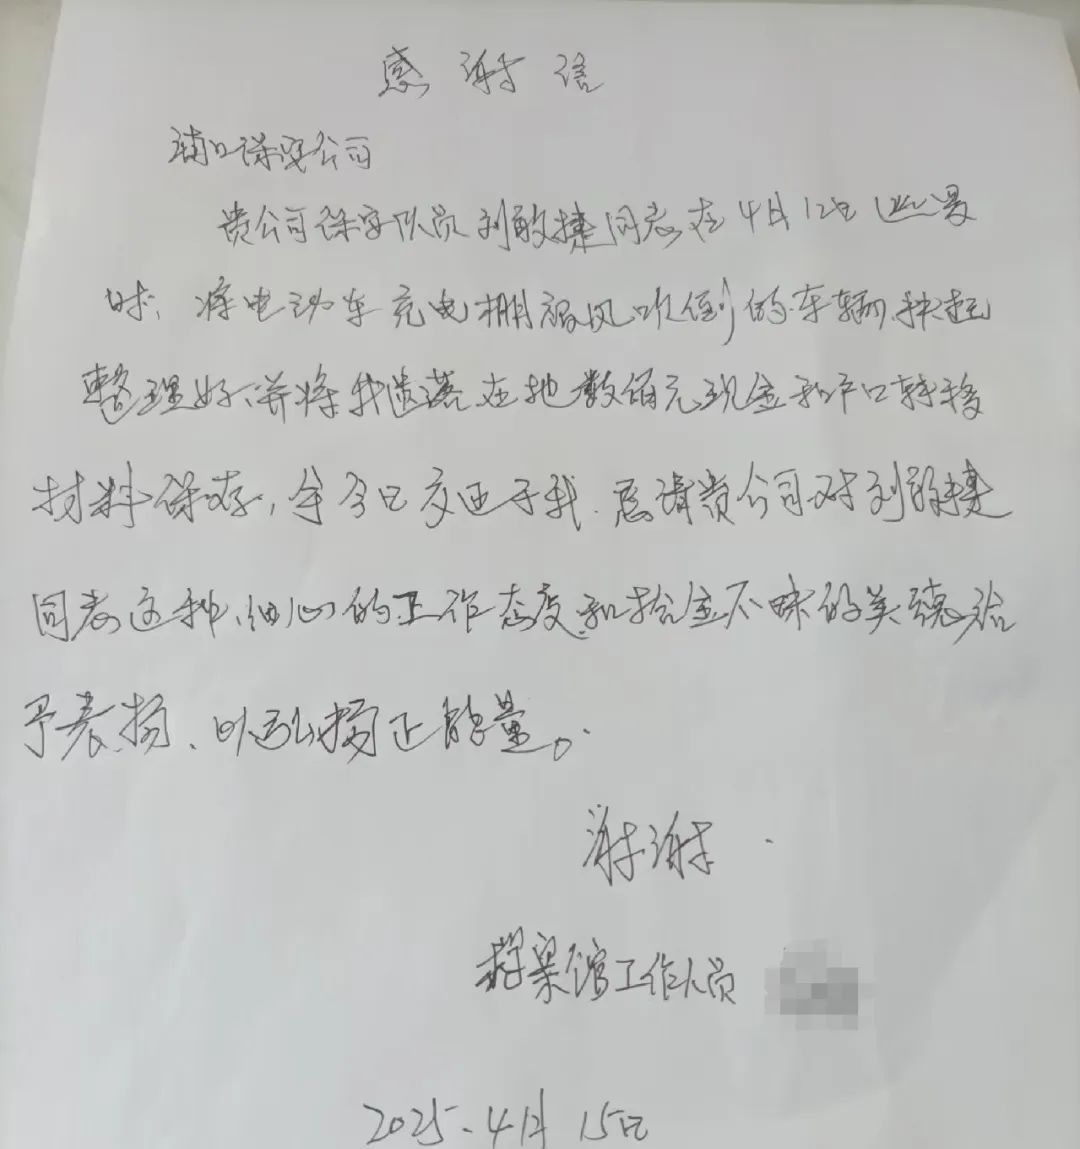 感谢语
浦口保安公司
贵公司保安队员刘敢捷同志在4月12日巡逻
时、将电动车充电棚被风吹倒的车辆扶起
整理好、并将我遗落在地数佰元现金和户口转移
材料保存,今日交还于我.恳请贵公司对刘敢捷
同志这种、细心的工作态度和拾金不昧的美德给
予表扬、以弘扬正能量。
谢谢
工作人员
2025.4月15日